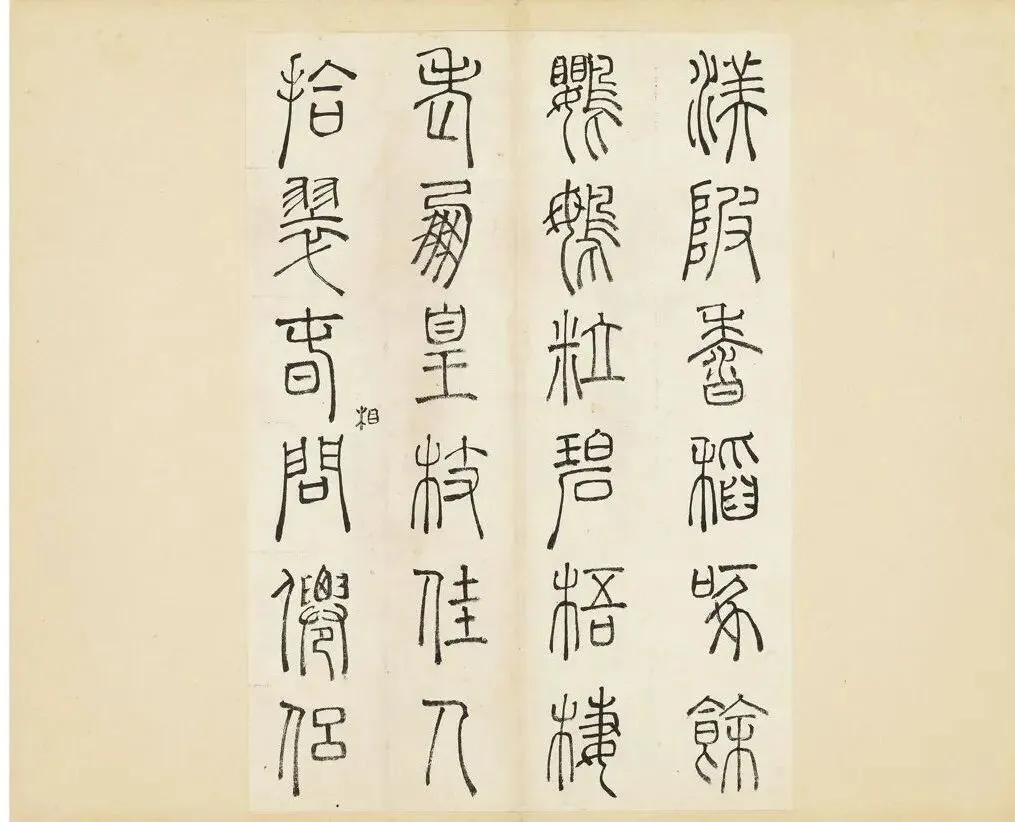 渼陂香稻啄餘
鸚䳇粒碧梧棲
老鳳皇枝佳人
拾翠春相問僊侶